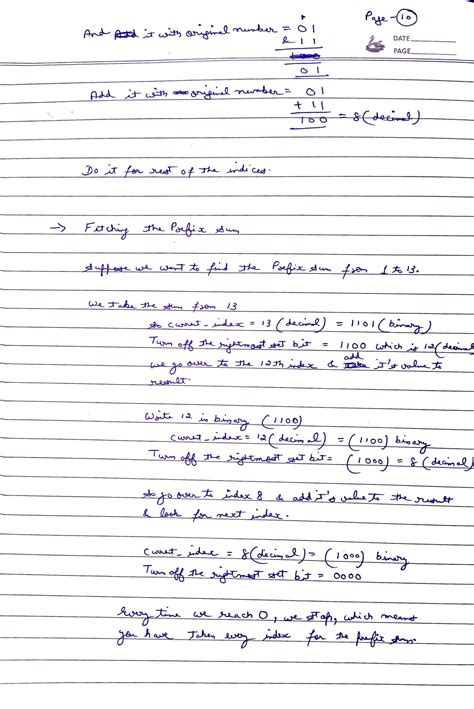 Page - 10
And it with original number = 01
& 11
01
DATE
PAGE
Add it with original number = 01
+ 11
100 = 8 (decimal)
Do it for rest of the indices.
→ Fetching the Prefix sum
Suppose we want to find the Prefix sum from 1 to 13.
We take the sum from 13
so curret_index = 13 (decimal) = 1101 (binary)
Turn off the rightmost set bit = 1100 which is 12 (decimal
we go over to the 12th index & add it's value to
result.
Write 12 is binary (1100)
curret_index = 12 (decimal) = (1100) binary
Turn off the rightmost set bit = (1000) = 8 (decimal)
so go over to index 8 & add it's value to the result
& look for next index.
Curret_index = 8 (decimal) = (1000) binary
Turn off the rightmost set bit = 0000
Every time we reach 0, we stop, which means
you have taken every index for the prefix sum.